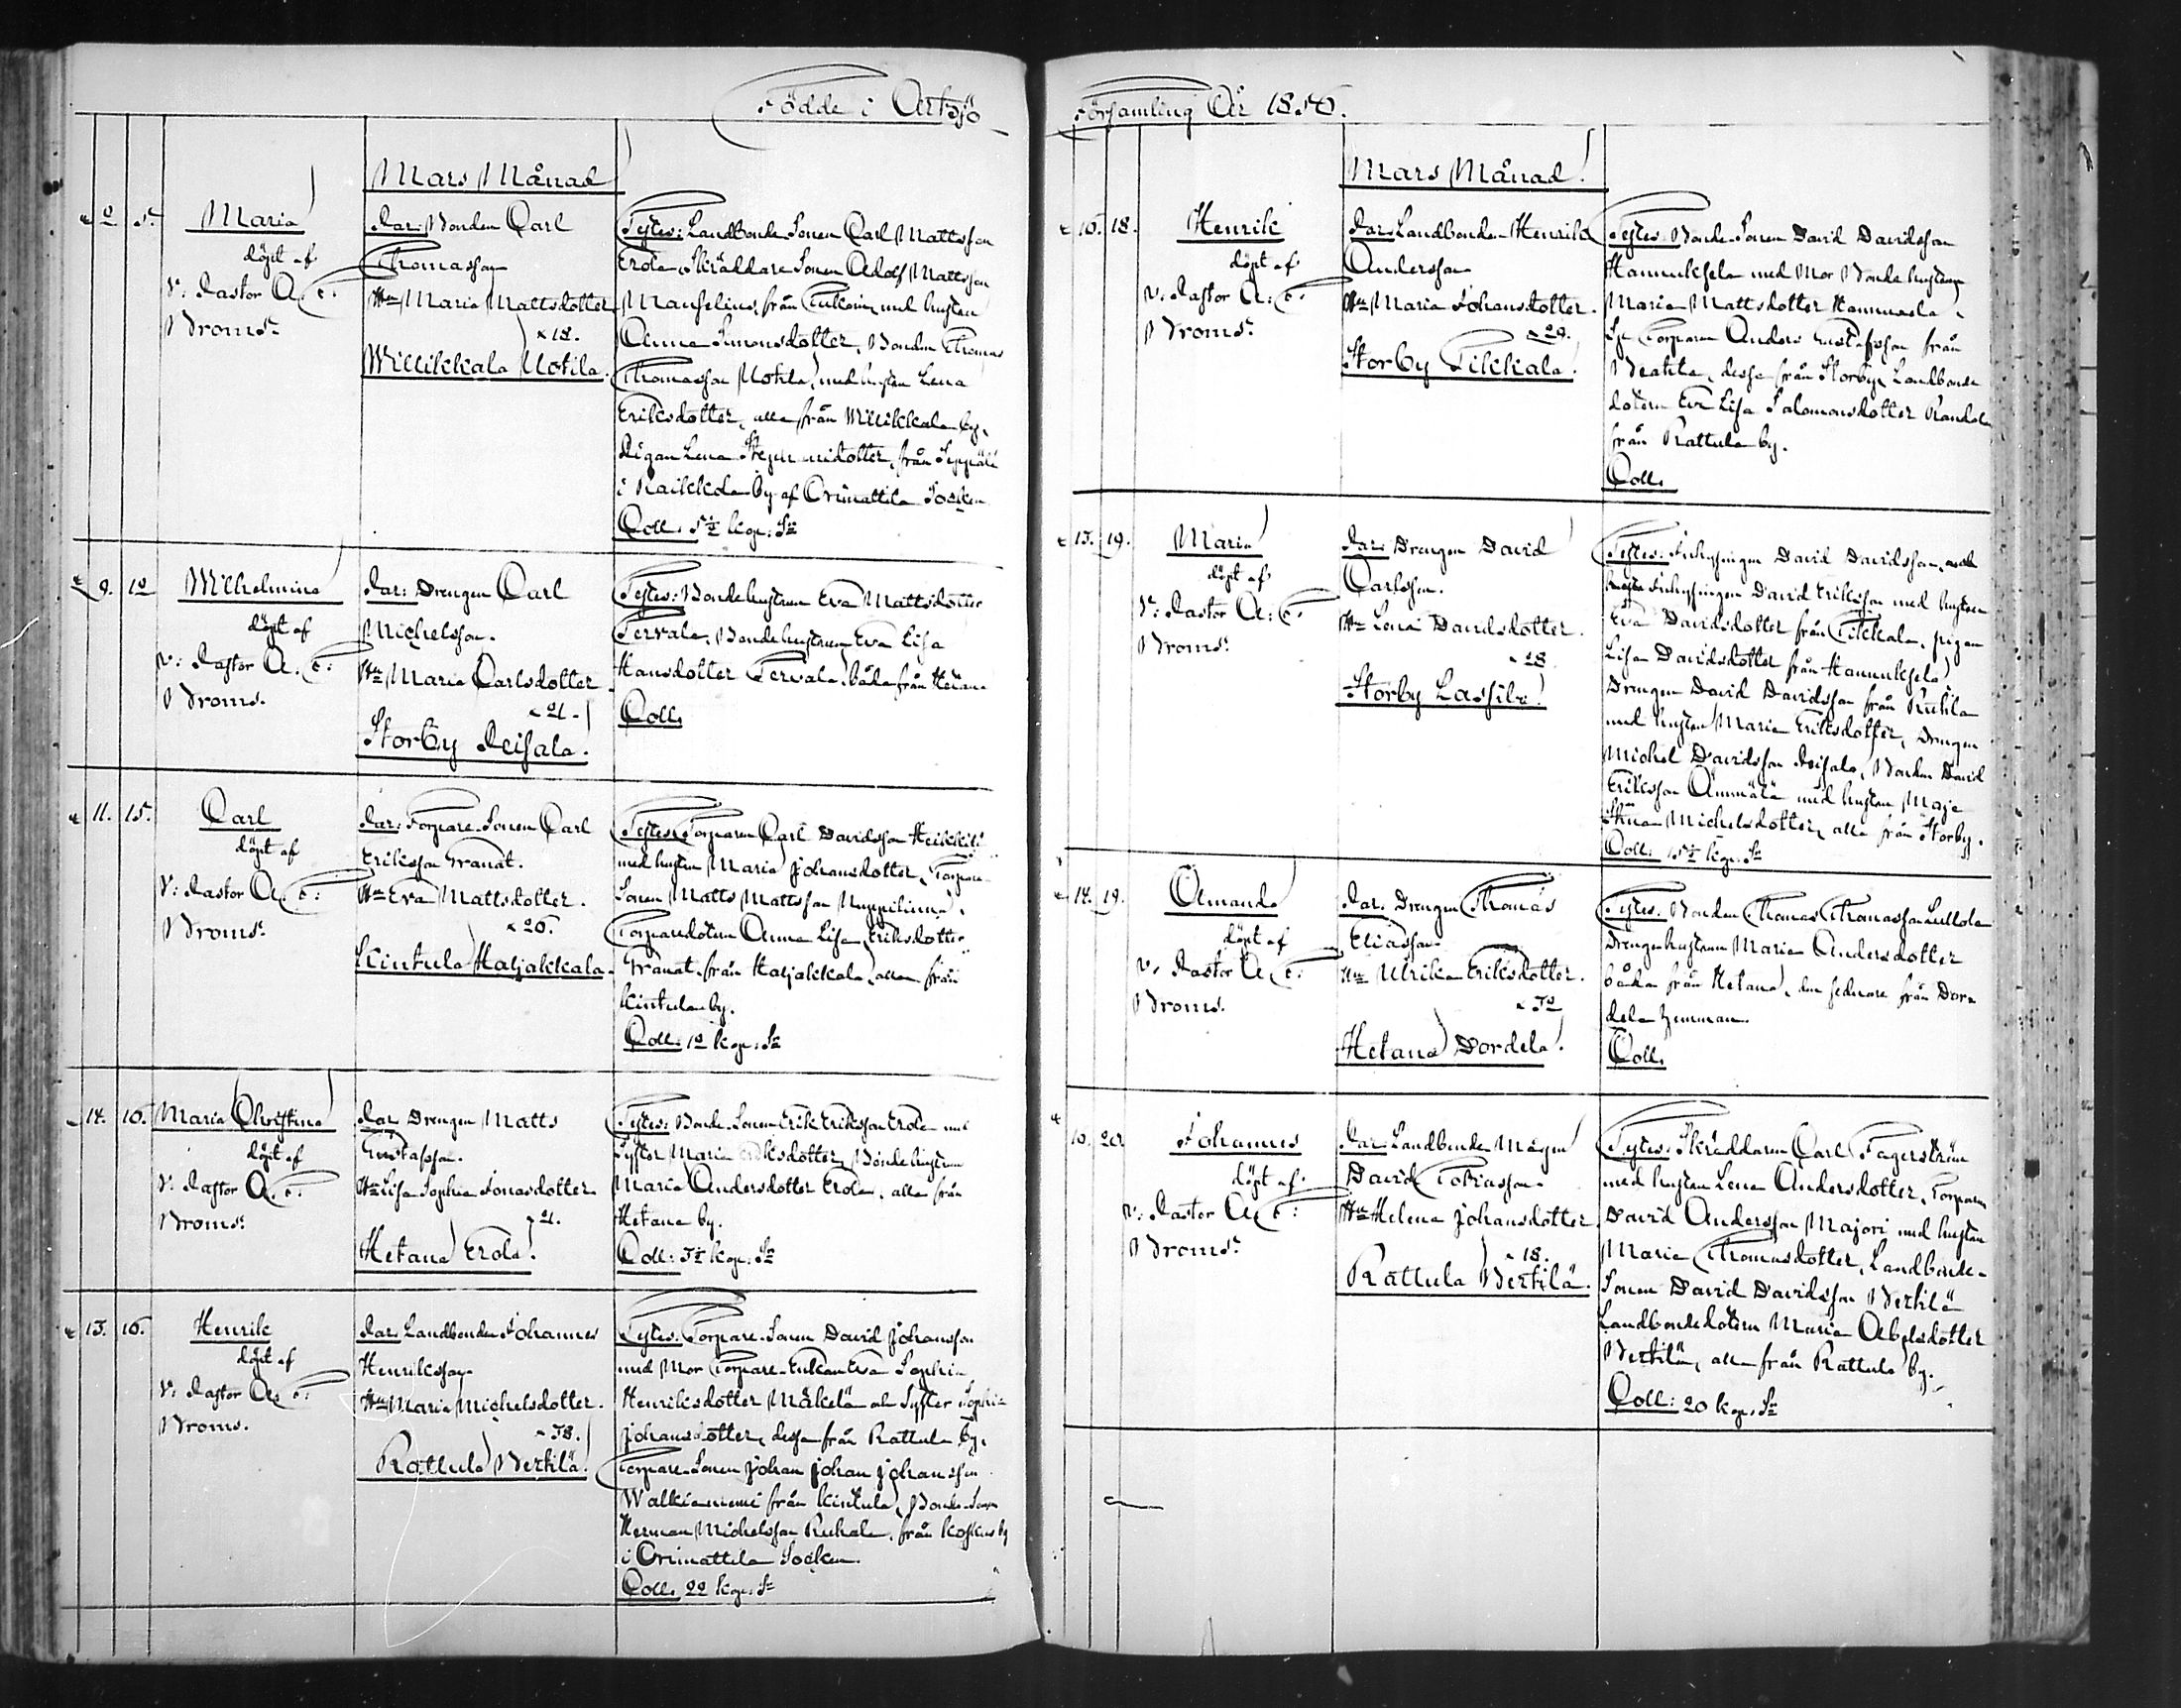 Födde i Artsjö
Mars Månad
2 5. Maria
döpt af
V: Pastor A. F:
Broms.
Par: Bonden Carl
Thomasson
Hu Maria Mattsdotter
18.
Willikkala Uotila.
Testes: Landbonde Sonen Carl Mattsson
Erola, Skräddare Sonen Adolf Mattsson
från med hustrun
Anna Simonsdotter, Bonden Thomas
Thomasson Uotila, med hustrun Lena
Eriksdotter, alla från Willikkala by,
Pigan Lena från Seppälä
i by af Orimattila Socken
Coll. kop: Sr
9. 12 Wilhelmina
döpt af
V: Pastor A. F:
Broms.
Par: Drengen Carl
Michelsson.
Hu Maria Carlsdotter
21.
Storby Peisala.
Testes: Bondehustrun Eva Mattsdotter
Tervala, Bondehustrun Eva Lisa
Hansdotter Tervala, båda från Hetana
Coll.
11. 15. Carl
döpt af
V: Pastor A. F:
Broms.
Par: Torpare-Sonen Carl
Eriksson Granat.
Hu Eva Mattsdotter.
26.
Kintula Harjakkala.
Testes: Torparen Carl Davidsson Heikkilä
med hustrun Maria Johansdotter, Torpare
Sonen Matts Mattsson
Torparedotren Anna Lisa Eriksdotter
Granat från Harjakkala, alla från
Kintula by.
Coll: 12 kop: Sr
14. 16. Maria Christina
döpt af
V: Pastor A. F:
Broms.
Par: Drengen Matts
Gustafsson.
Hu Lisa Sophia Jonasdotter.
21.
Hetana Erola.
Testes: Bonde-Sonen Erik Eriksson Erola med
Syster Maria Eriksdotter, Bondehustrun
Maria Andersdotter Erola, alla från
Hetana by.
Coll: kop: Sr
13. 16. Henrik
döpt af
V: Pastor A. F:
Broms.
Par: Landbonden Johannes
Henriksson
Hu Maria Michelsdotter.
38.
Rattula Bertilä.
Testes: Torpare-Sonen David Johansson
med Mor Torpare-Enkan Eva Sophia
Henriksdotter Mäkelä och Syster Sophia
Johansdotter, dessa från Rattula by,
Torpare-Sonen Johan Johan Johansson
Walkianiemi från Kintula, Bonde-Sonen
Herman Michelsson från Koskus by
i Orimattila Socken.
Coll. 22 kop: Sr
Församling År 1856.
Mars Månad.
16. 18. Henrik
döpt af
V: Pastor A: F:
Broms.
Par: Landbonden Henrik
Andersson
Hu Maria Johansdotter.
29.
Storby Pikkala.
Testes: Bonde-Sonen David Davidsson
Hannuksela med Mor Bonde hustrun
Maria Mattsdotter
Torparen Anders Gustafsson från
dessa från Storby, Landbonde
dotren Eva Lisa Salomonsdotter
från Rattula by.
Coll.
13. 19. Maria
döpt af
V: Pastor A: F:
Broms.
Par: Drengen David
Carlsson.
Hu Lena Davidsdotter.
28.
Storby Lassila.
Testes: Inhysingen David Davidsson, med
hustru Inhysingen David Eriksson med hustrun
Eva Davidsdotter från Pikkala, pigan
Lisa Davidsdotter från Hannuksela
Drengen David Davidsson från
med hustrun Maria Eriksdotter, Drengen
Michel Davidsson Peisala, Bonden David
Eriksson Ämmälä med hustrun Maja
Stina Michelsdotter, alla från Storby.
Coll: kop: Sr
14. 19. Amanda
döpt af
V: Pastor A. F:
Broms.
Par: Drengen Thomas
Eliasson
Hu Ulrika Eriksdotter.
32
Hetana Dordela.
Testes: Bonden Thomas Thomasson
Drengehustrun Maria Andersdotter
båda från Hetana, den sednare från Dor
dela hemman.
Coll.
16. 20. Johannes
döpt af
V: Pastor A. F:
Broms.
Par: Landbonde Mågen
David Tobiasson.
Hu Helena Johansdotter
18.
Rattula Bertilä.
Testes: Skräddaren Carl Fagerström
med hustrun Lena Andersdotter, Torparen
David Andersson Majori med hustrun
Maria Thomasdotter, Landbonde-
Sonen David Davidsson Bertilä
Landbondedotren Maria Abelsdotter
Bertilä, alla från Rattula by.
Coll: 20 kop: Sr